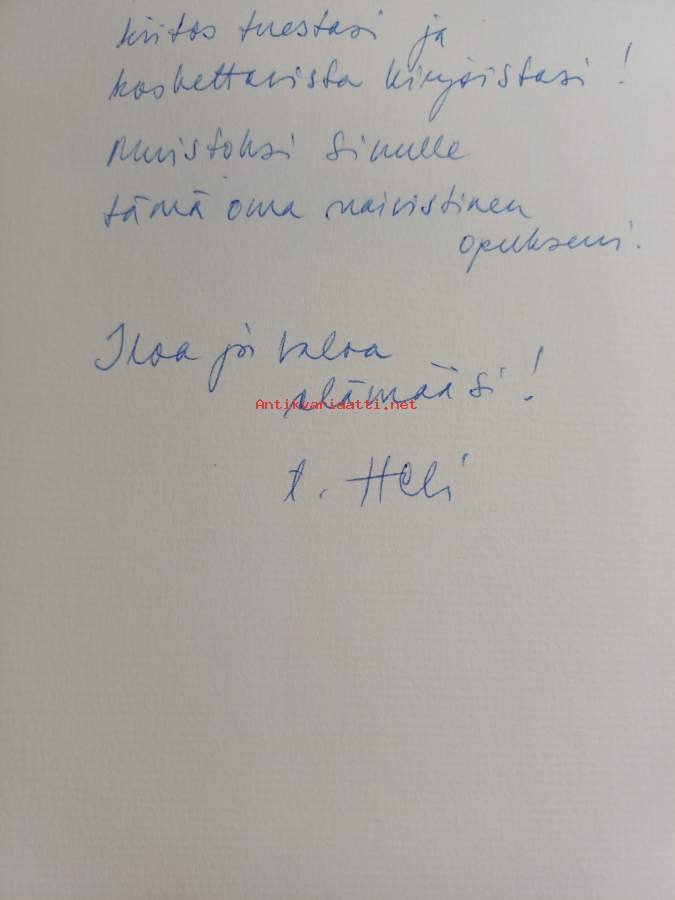 kiitos tuestasi ja
koskettavista kirjoistasi!
Muistoksi Sinulle
tämä oma naivistinen
opukseni.
Iloa ja valoa
elämääsi!
Antikvariaatti.net
t. Heli